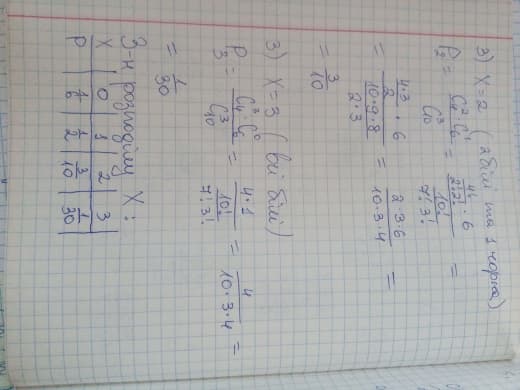 3) X=2 (2 білі та 1 чорна)
P₂ = C₄²·C₆¹ / C₁₀³ = (4!/(2!2!) · 6) / (10!/(7!3!)) =
= (4·3/2 · 6) / (10·9·8/(2·3)) = 2·3·6 / 10·3·4 =
= 3/10
3) X=3 (всі білі)
P₃ = C₄³·C₆⁰ / C₁₀³ = 4·1 / (10!/(7!3!)) = 4 / 10·3·4 =
= 1/30
З-н розподілу X:
X | 0 | 1 | 2 | 3
P | 1/6 | 1/2 | 3/10 | 1/30